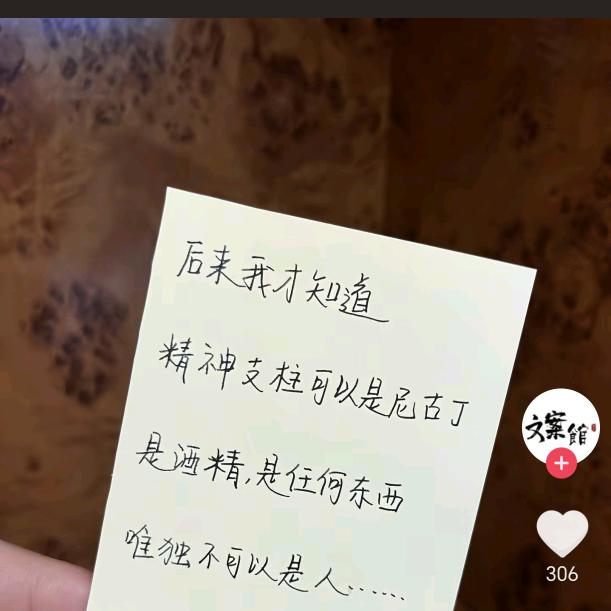 后来我才知道
精神支柱可以是尼古丁
是酒精,是任何东西
唯独不可以是人……
文案館
306